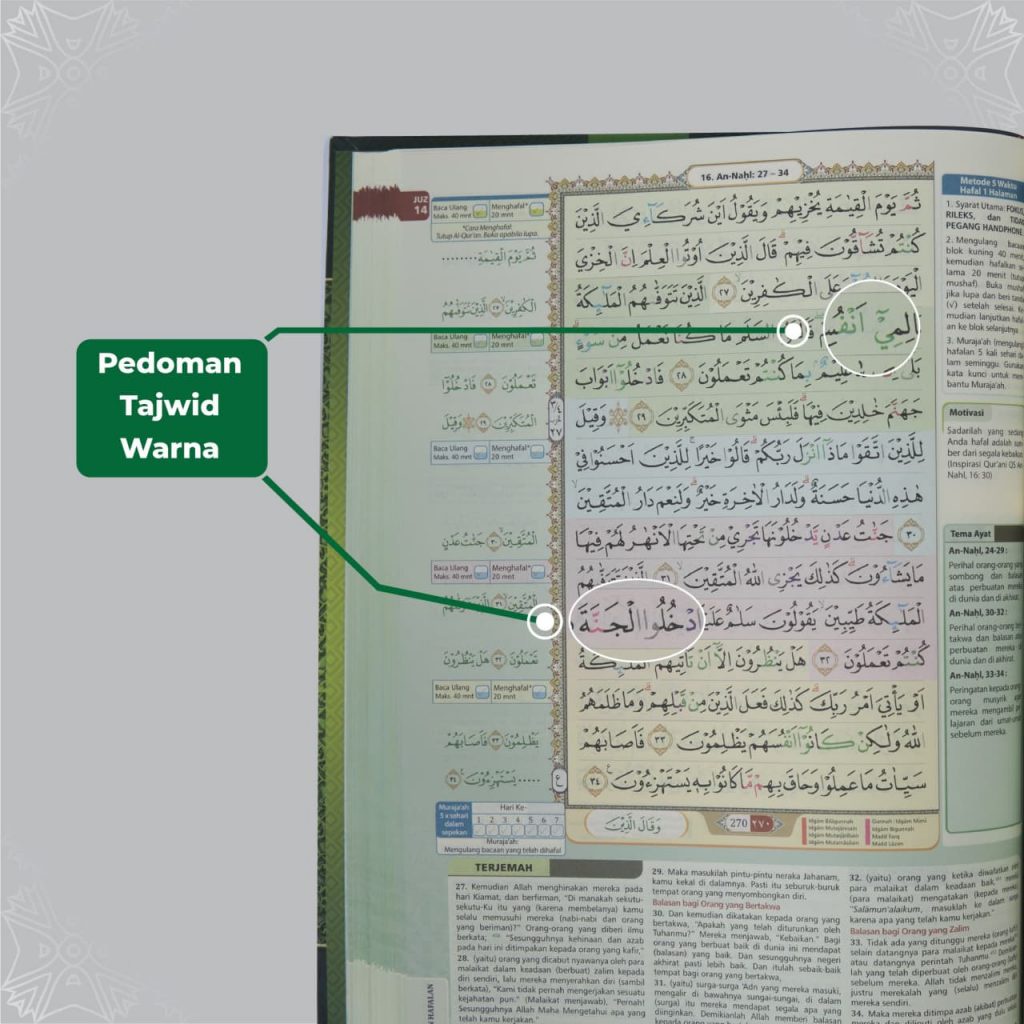 Pedoman
Tajwid
Warna
JUZ
14
Baca Ulang
Maks. 40 mnt
Menghafal*
20 mnt
*Cara Menghafal:
Tutup Al-Qur'an. Buka apabila lupa.
ثُمَّ يَوْمَ الْقِيٰمَةِ........
الْكٰفِرِيْنَ ٢٧ الَّذِيْنَ تَتَوَفّٰىهُمُ
Baca Ulang
Maks. 40 mnt
Menghafal*
20 mnt
تَعْمَلُوْنَ ٢٨ فَادْخُلُوْٓا
الْمُتَكَبِّرِيْنَ ٢٩ وَقِيْلَ
Baca Ulang
Maks. 40 mnt
Menghafal*
20 mnt
الْمُتَّقِيْنَ ٣٠ جَنّٰتُ عَدْنٍ
Baca Ulang
Maks. 40 mnt
Menghafal*
20 mnt
الْمُتَّقِيْنَ ٣١ الَّذِيْنَ تَتَوَفّٰىهُمُ
تَعْمَلُوْنَ ٣٢ هَلْ يَنْظُرُوْنَ
Baca Ulang
Maks. 40 mnt
Menghafal*
20 mnt
يَظْلِمُوْنَ ٣٣ فَاَصَابَهُمْ
..... يَسْتَهْزِءُوْنَ ٣٤
Muraja'ah
5 x sehari
dalam
sepekan
Hari Ke-
1 2 3 4 5 6 7
Muraja'ah:
Mengulang bacaan yang telah dihafal
16. An-Naḥl: 27 – 34
ثُمَّ يَوْمَ الْقِيٰمَةِ يُخْزِيْهِمْ وَيَقُوْلُ اَيْنَ شُرَكَاۤءِيَ الَّذِيْنَ
كُنْتُمْ تُشَاۤقُّوْنَ فِيْهِمْ ۗ قَالَ الَّذِيْنَ اُوْتُوا الْعِلْمَ اِنَّ الْخِزْيَ
الْيَوْمَ عَلَى الْكٰفِرِيْنَ ۙ ٢٧ الَّذِيْنَ تَتَوَفّٰىهُمُ الْمَلٰۤىِٕكَةُ
الِمِيْٓ اَنْفُسِ السَّلَمَ مَا كُنَّا نَعْمَلُ مِنْ سُوْۤءٍ ۗ
بَلٰٓى عَلِيْمٌ ۢ بِمَا كُنْتُمْ تَعْمَلُوْنَ ٢٨ فَادْخُلُوْٓا اَبْوَابَ
جَهَنَّمَ خٰلِدِيْنَ فِيْهَا ۗ فَلَبِئْسَ مَثْوَى الْمُتَكَبِّرِيْنَ ٢٩ ۞ وَقِيْلَ
لِلَّذِيْنَ اتَّقَوْا مَاذَآ اَنْزَلَ رَبُّكُمْ ۗ قَالُوْا خَيْرًا ۗ لِلَّذِيْنَ اَحْسَنُوْا فِيْ
هٰذِهِ الدُّنْيَا حَسَنَةٌ ۗ وَلَدَارُ الْاٰخِرَةِ خَيْرٌ ۗ وَلَنِعْمَ دَارُ الْمُتَّقِيْنَ ۙ
٣٠ جَنّٰتُ عَدْنٍ يَّدْخُلُوْنَهَا تَجْرِيْ مِنْ تَحْتِهَا الْاَنْهٰرُ لَهُمْ فِيْهَا
مَا يَشَاۤءُوْنَ ۗ كَذٰلِكَ يَجْزِى اللّٰهُ الْمُتَّقِيْنَ ۙ ٣١ الَّذِيْنَ تَتَوَفّٰىهُمُ
الْمَلٰۤىِٕكَةُ طَيِّبِيْنَ ۙ يَقُوْلُوْنَ سَلٰمٌ عَلَيْ ادْخُلُوا الْجَنَّةَ
كُنْتُمْ تَعْمَلُوْنَ ٣٢ هَلْ يَنْظُرُوْنَ اِلَّآ اَنْ تَأْتِيَهُمُ الْمَلٰۤىِٕكَةُ
اَوْ يَأْتِيَ اَمْرُ رَبِّكَ ۗ كَذٰلِكَ فَعَلَ الَّذِيْنَ مِنْ قَبْلِهِمْ ۗ وَمَا ظَلَمَهُمُ
اللّٰهُ وَلٰكِنْ كَانُوْٓا اَنْفُسَهُمْ يَظْلِمُوْنَ ٣٣ فَاَصَابَهُمْ
سَيِّاٰتُ مَا عَمِلُوْا وَحَاقَ بِهِمْ مَّا كَانُوْا بِهٖ يَسْتَهْزِءُوْنَ ٣٤
وَقَالَ الَّذِيْنَ
270 ٢٧٠
Metode 5 Waktu
Hafal 1 Halaman
1. Syarat Utama: FOKUS,
RILEKS, dan
PEGANG HANDPHONE
2. Mengulang bacaan
blok kuning 40 menit
kemudian hafalkan
lama 20 menit (tutup
mushaf). Buka
jika lupa dan beri tanda
(√) setelah selesai.
mudian lanjutkan
an ke blok selanjutnya
3. Muraja'ah (mengulang
hafalan 5 kali sehari
lam seminggu. Gunakan
kata kunci untuk
bantu Muraja'ah.
Motivasi
Sadarilah yang sedang
Anda hafal adalah
ber dari segala kebaikan
(Inspirasi Qur'ani QS An-
Nahl, 16: 30)
Tema Ayat
An-Naḥl, 24-29:
Perihal orang-orang yang
sombong dan balasan
atas perbuatan mereka
di dunia dan di akhirat.
An-Naḥl, 30-32:
Perihal orang-orang
takwa dan balasan
perbuatan mereka
dunia dan di akhirat.
An-Naḥl, 33-34:
Peringatan kepada
orang musyrik
mereka mengambil
lajaran dari
sebelum mereka.
TERJEMAH
27. Kemudian Allah menghinakan mereka pada
hari Kiamat, dan berfirman, "Di manakah sekutu-
sekutu-Ku itu yang (karena membelanya) kamu
selalu memusuhi mereka (nabi-nabi dan orang
yang beriman)?" Orang-orang yang diberi ilmu
berkata; "Sesungguhnya kehinaan dan azab
pada hari ini ditimpakan kepada orang yang kafir,"
28. (yaitu) orang yang dicabut nyawanya oleh para
malaikat dalam keadaan (berbuat) zalim kepada
diri sendiri, lalu mereka menyerahkan diri (sambil
berkata), "Kami tidak pernah mengerjakan sesuatu
kejahatan pun." (Malaikat menjawab), "Pernah!
Sesungguhnya Allah Maha Mengetahui apa yang
telah kamu kerjakan."
29. Maka masukilah pintu-pintu neraka Jahanam,
kamu kekal di dalamnya. Pasti itu seburuk-buruk
tempat orang yang menyombongkan diri.
Balasan bagi Orang yang Bertakwa
30. Dan kemudian dikatakan kepada orang yang
bertakwa, "Apakah yang telah diturunkan oleh
Tuhanmu?" Mereka menjawab, "Kebaikan." Bagi
orang yang berbuat baik di dunia ini mendapat
(balasan) yang baik. Dan sesungguhnya negeri
akhirat pasti lebih baik. Dan itulah sebaik-baik
tempat bagi orang yang bertakwa,
31. (yaitu) surga-surga 'Adn yang mereka masuki,
mengalir di bawahnya sungai-sungai, di dalam
(surga) itu mereka mendapat segala apa yang
diinginkan. Demikianlah Allah memberi balasan
32. (yaitu) orang yang ketika diwafatkan
para malaikat dalam keadaan baik, mereka
(para malaikat) mengatakan (kepada mereka)
"Salāmun'alaikum, masuklah ke dalam
karena apa yang telah kamu kerjakan."
Balasan bagi Orang yang Zalim
33. Tidak ada yang ditunggu mereka (orang kafir)
selain datangnya para malaikat kepada mereka
atau datangnya perintah Tuhanmu. Demikian-
lah yang telah diperbuat oleh orang-orang (kafir)
sebelum mereka. Allah tidak menzalimi mereka,
justru merekalah yang (selalu) menzalimi
mereka sendiri.
34. Maka mereka ditimpa azab (akibat) perbuatan
HAFALAN